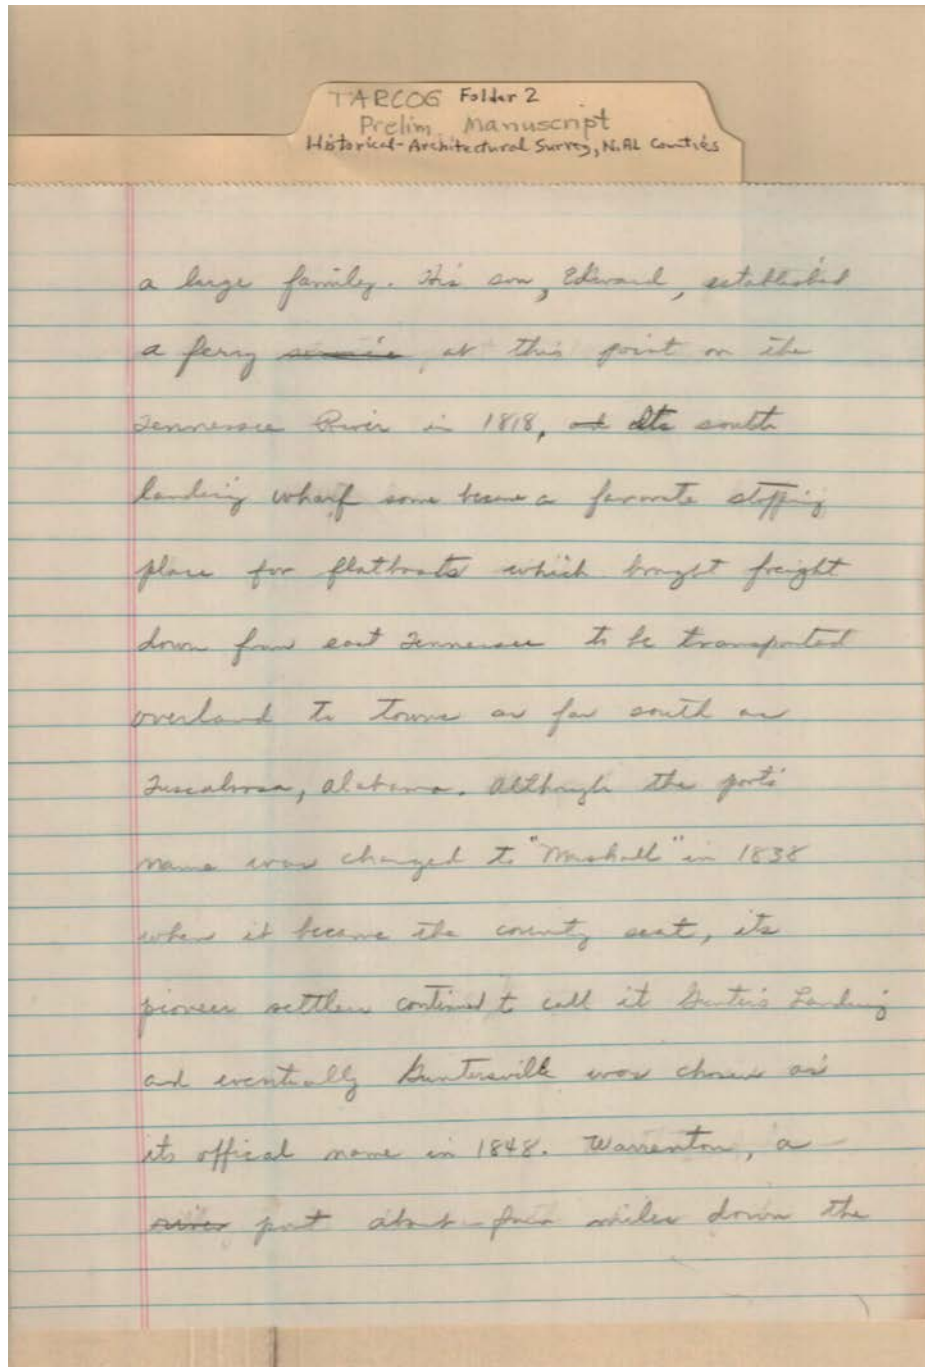 TARCOG Folder 2
Prelim Manuscript
Historical-Architectural Survey, N.AL Counties
a large family. His son, Edward, established
a ferry service at this point on the
Tennessee River in 1818, and Its south
landing wharf some became a favorite stopping
place for flatboats which brought freight
down from east Tennessee to be transported
overland to towns as far south as
Tuscaloosa, Alabama. Although the ports
name was changed to "Marshall" in 1838
when it became the county seat, its
pioneer settlers continued to call it Gunter's Landing
and eventually Guntersville was chosen as
its offical name in 1848. Warrenton, a
river port about four miles down the